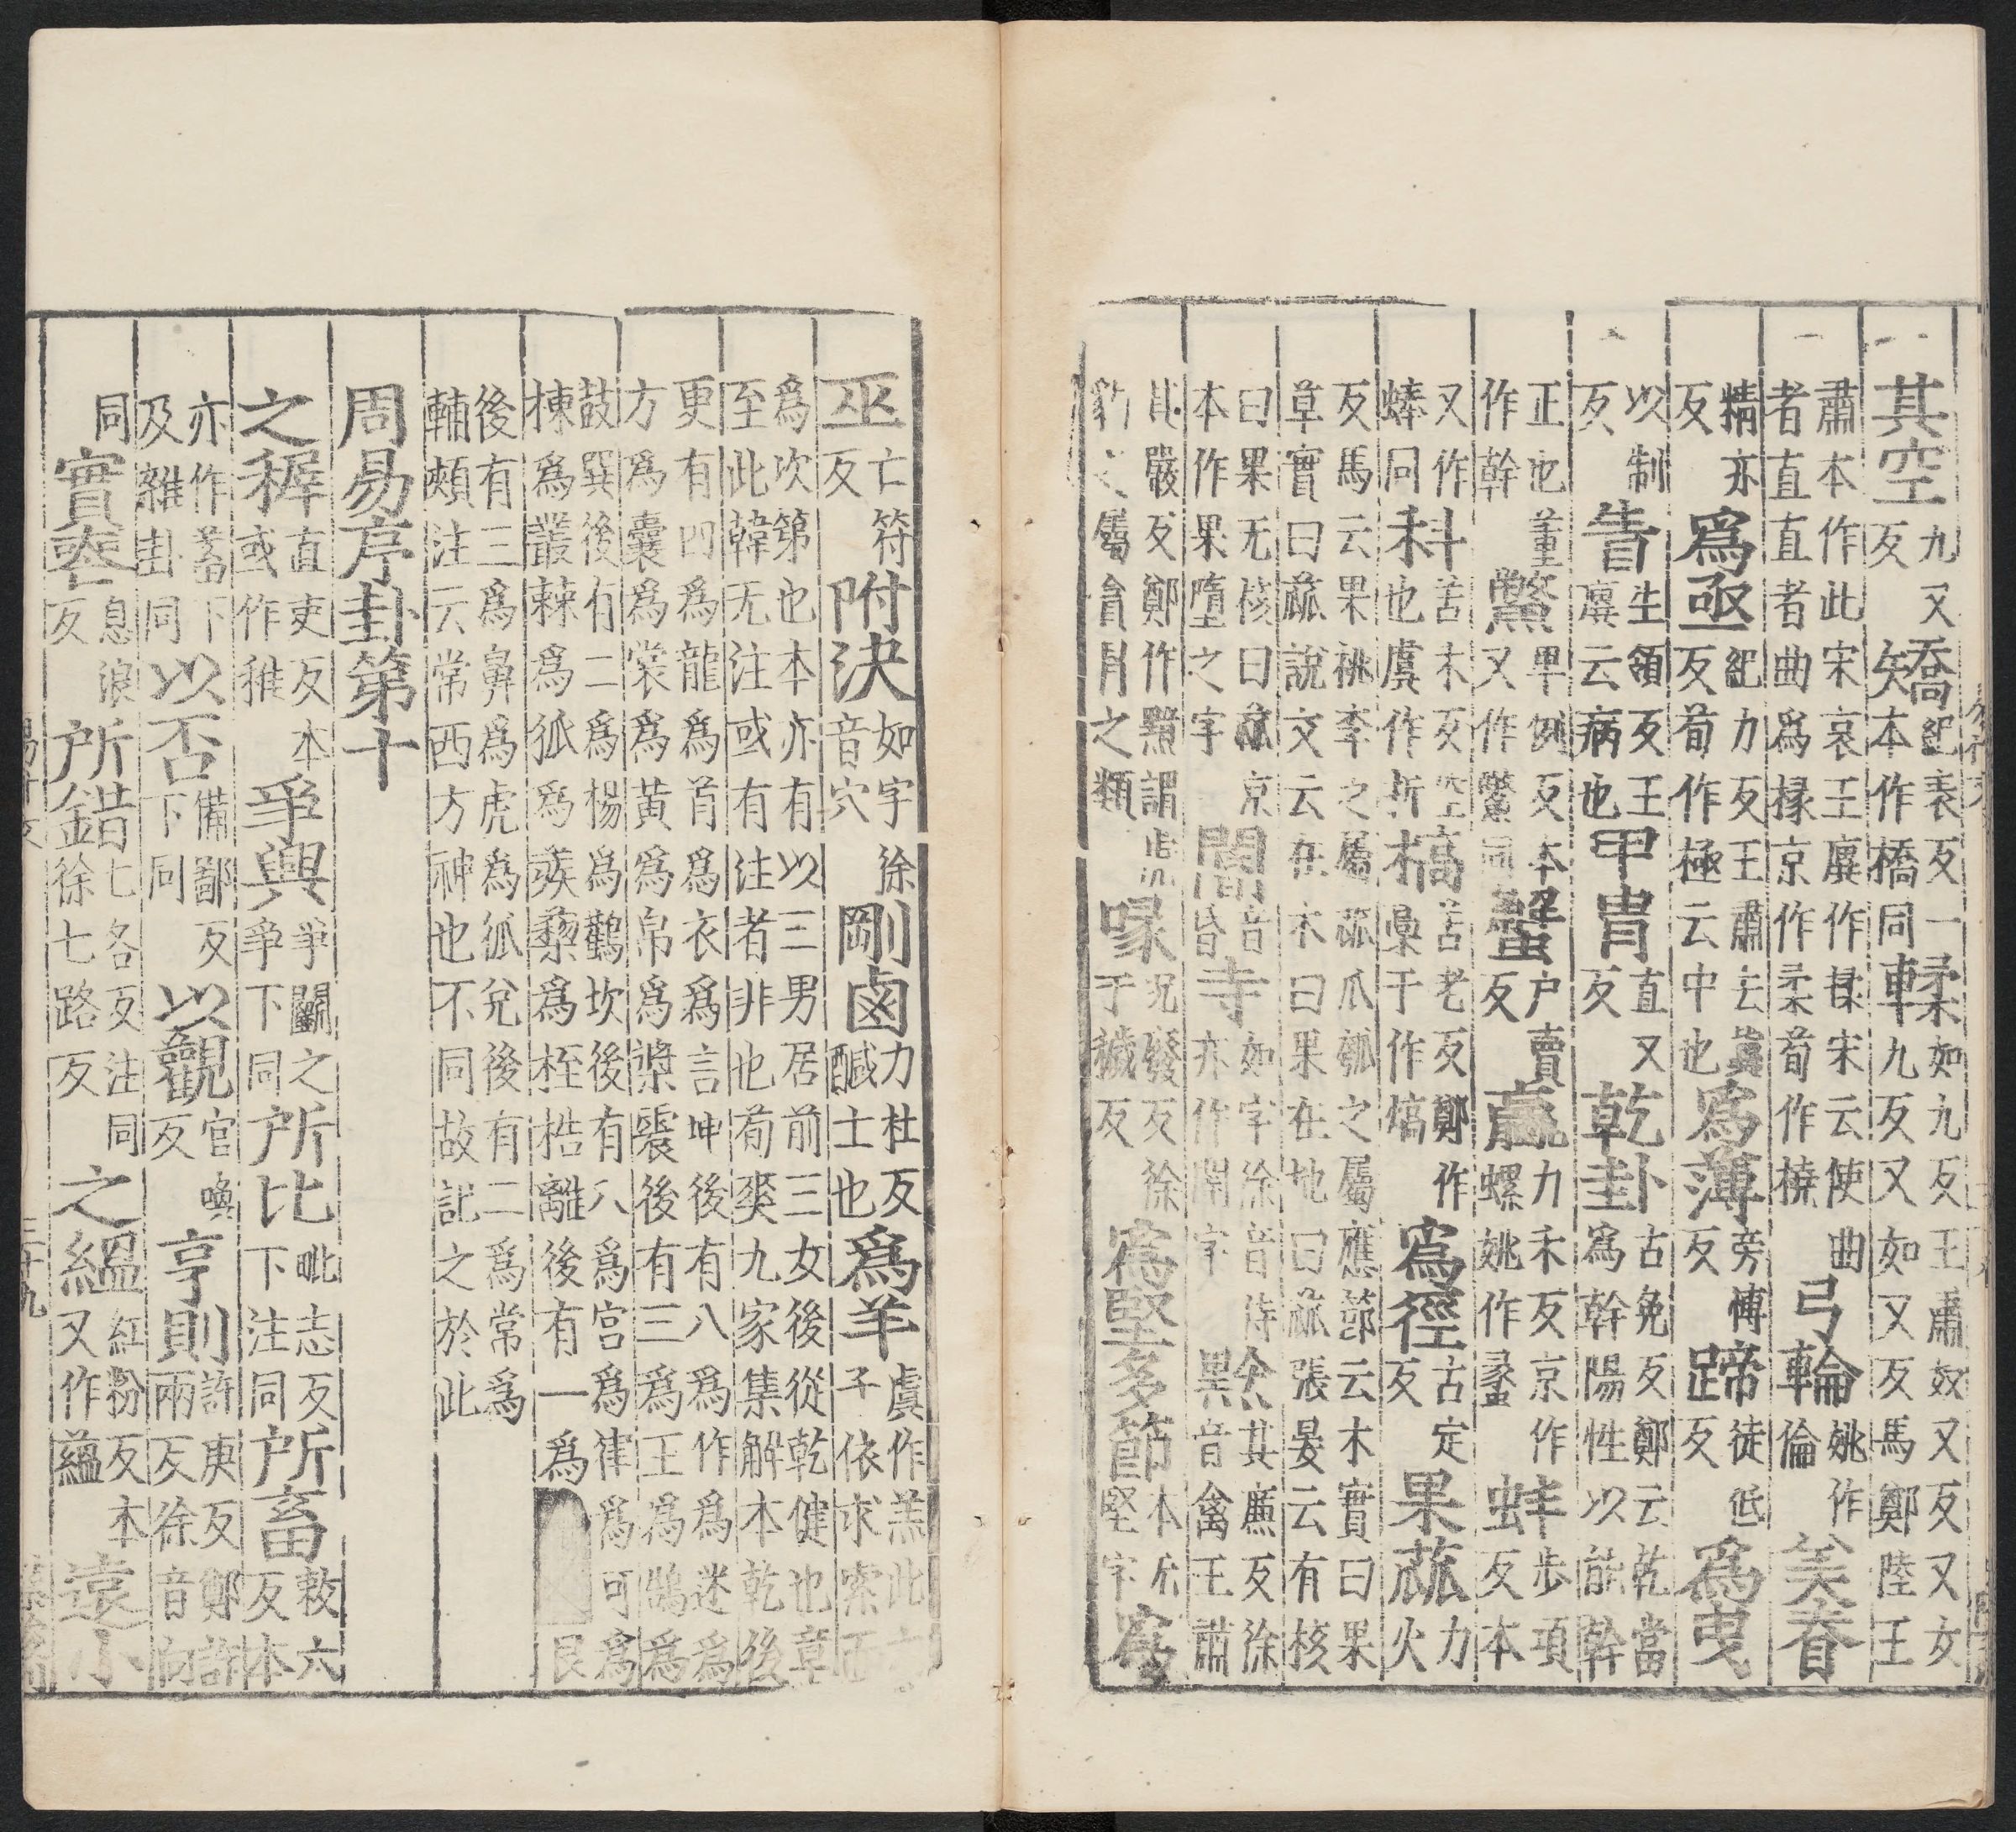 其空九又反矯紀表反一本作橋同輮如九反王肅奴又反又女九反又如又反馬鄭陸王
肅本作此宋衷王廙作揉宋云使曲者直直者曲為揉京作柔荀作橈弓輪姚作倫美脊
精亦反為亟紀力反王肅去冀反荀作極云中也為薄旁博反蹄徒低反為曳
以制反眚生領反王廙云病也甲冑直又反乾卦古免反鄭云乾當為幹陽性以能幹
正也董作幹鱉卑例反本又作鼈同蟹戶賣反蠃力禾反京作螺姚作蠡蚌步項反本
又作蜯同科苦木反空也虞作折槁苦老反鄭作槀于作熇為徑古定反果蓏力火
反馬云果桃李之屬蓏瓜瓠之屬應劭云木實曰果草實曰蓏說文云在木曰果在地曰蓏張晏云有核
曰果无核曰蓏京本作果墮之字閽音昏寺如字徐音侍亦作閽字黔其廉反徐音禽王肅
其嚴反鄭作黯謂虎豹之屬貪冒之類喙況廢反徐于穢反為堅多節本无堅字為
巫亡符反附決如字徐音穴剛鹵力杜反鹹土也為羊虞作羔此六子依求索而
為次第也本亦有以三男居前三女後從乾健也章至此韓无注或有注者非也荀爽九家集解本乾後
更有四為龍為首為衣為言坤後有八為作為迷為方為囊為裳為黃為帛為漿震後有三為王為鵠為
鼓巽後有二為楊為鸛坎後有八為宮為律為可為棟為叢棘為狐為蒺蔾為桎梏離後有一為艮
後有三為鼻為虎為狐兌後有二為常為輔頰注云常西方神也不同故記之於此
周易序卦第十
之稺直吏反本或作稚爭興爭鬭之爭下同所比毗志反下注同所畜敕六反本
亦作蓄下及雜卦同以否備鄙反下同以觀官喚反亨則許庚反鄭許兩反徐音向
同實喪息浪反所錯七各反注同徐七路反之縕紅粉反本又作蘊遠小
三十九